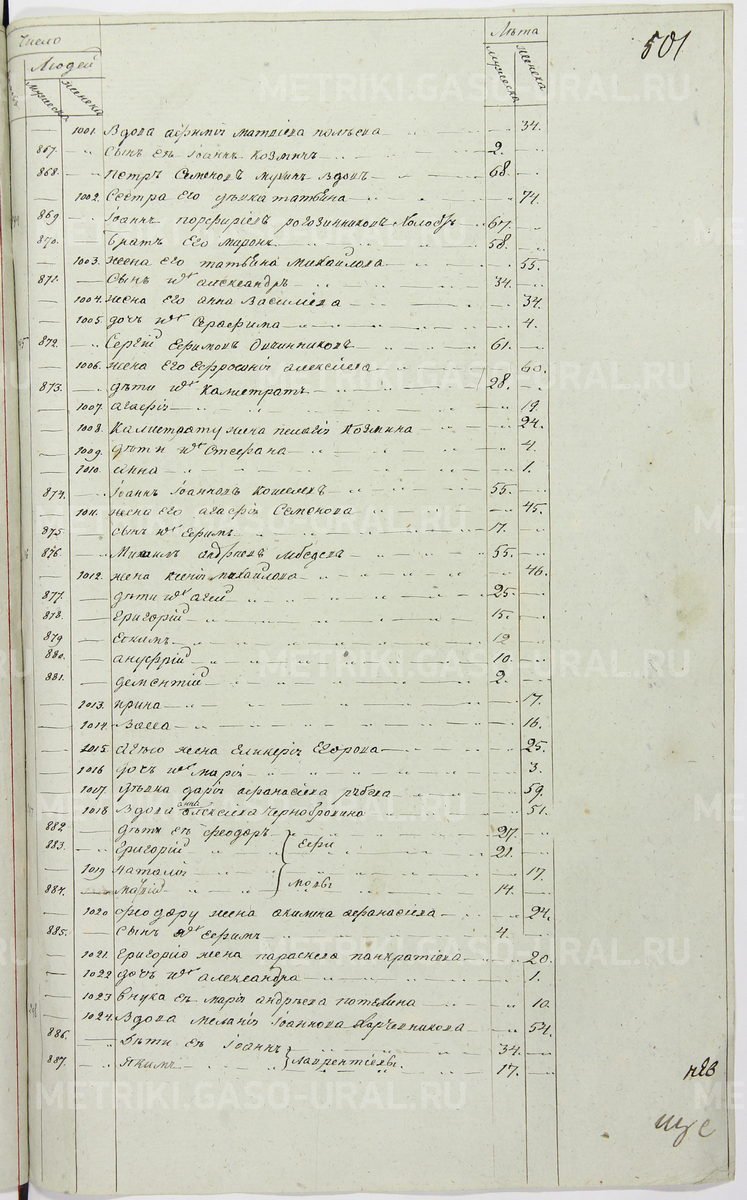 501
Число
Людей
Лѣта
мужеска
женска
мужеска
женска
1001. Вдова Афимiя Матвiева 34.
867. Сынъ ея Iоаннъ Козмичъ 2.
868. Петръ Семеновъ Мухинъ вдовъ 68.
1002. Сестра его дѣвка Татьяна 74.
869 Iоаннъ Порфирiевъ Рогозинниковъ холостъ 67.
870. Братъ его Миронъ 58.
1003. жена его Татьяна Михайлова 55.
871. Сынъ ихъ Александръ 34.
1004. жена его Анна Василiева 34.
1005 дочь ихъ Серафима 4.
872. Сергiй Ефимовъ Овчинниковъ 61.
1006. жена его Ефросинiя Алексiева 60.
873. дѣти ихъ Калистратъ 28.
1007. Агафiя 19.
1008. Калистрату жена Пелагiя Козмина 24.
1009. дѣти ихъ Стефана 4.
1010. Анна 1.
874. Iоаннъ Iоанновъ Кошелевъ 55.
1011. жена его Агафiя Семенова 45.
875. Сынъ ихъ Ефимъ 17.
876. Михаилъ Андреевъ 55.
1012. жена Ксенiя Михайлова 46.
877. дѣти ихъ Агей 25.
878. Григорiй 15.
879 Екимъ 12
880. Ануфрiй 10.
881. Дементiй 2.
1013. Ирина 17.
1014. Васса 16.
1015 Агѣю жена Гликерiя Егорова 25.
1016 дочь ихъ Марiя 3.
1017 дѣвка Дарiя Афанасiева 59.
1018 Вдова Анна Алексiева Чернобровина 51.
882. дѣти ея Феодоръ 27.
883. Григорiй Ефи 21.
1019 Наталiя 17.
884. мовы 14.
1020 Феодору жена Акилина Афанасiева 24.
885. Сынъ ихъ Ефимъ 4.
1021. Григорiю жена Параскева Панкратiева 20.
1022 дочь ихъ Александра 1.
1023 Внука ея Марiя Андреева 10.
1024. Вдова Меланiя Iоаннова Харчевникова 54.
886. Дѣти ея Iоаннъ 34.
887. Якимъ Лаврентiевы. 17.
METRIKI.GASO-URAL.RU